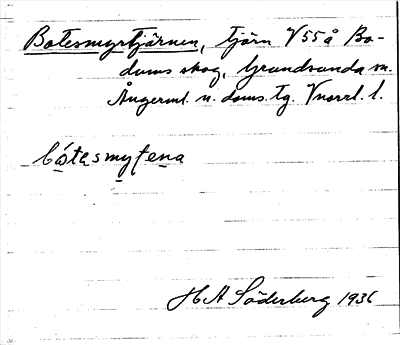 Botesmyrtjärnen, tjärn V 55 å Bo-
dums skog, Grundsunda sn.
Ångerml. n. doms. tg. Vnorrl. l.
bo̗tesmyʈena
H A Söderberg 1936